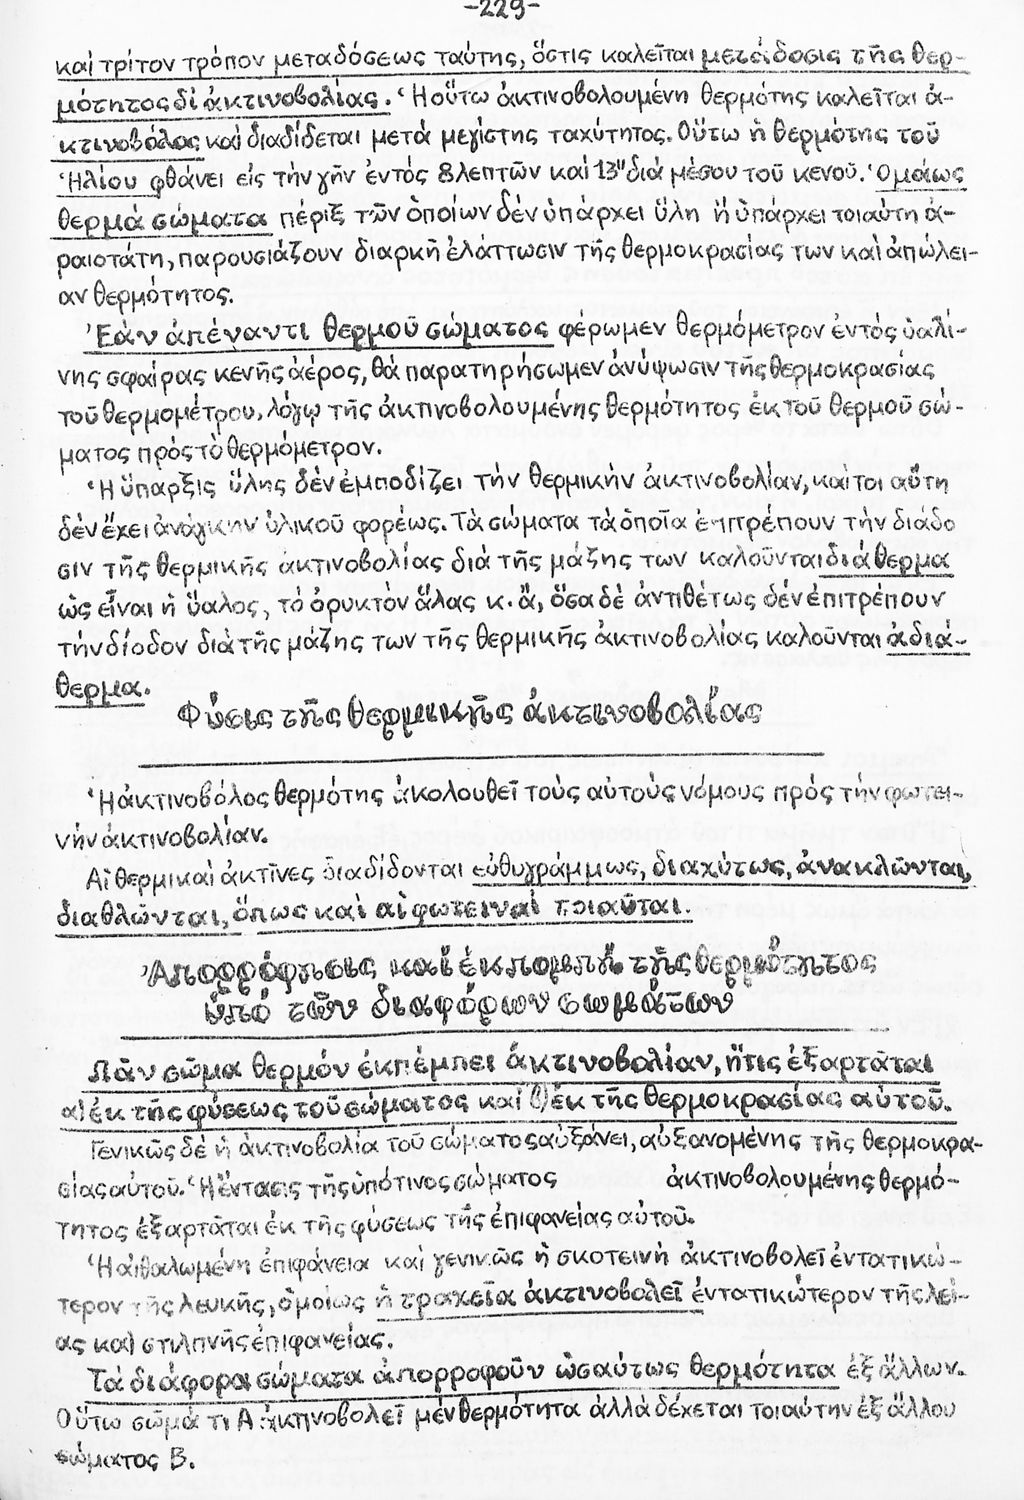 -229-
καί τρίτον τρόπον μεταδόσεως ταύτης, ὅστις καλεῖται μετάδοσις τῆς θερ-
μότητος δί ἀκτινοβολίας. Ἡ οὕτω ἀκτινοβολουμένη θερμότης καλεῖται ἀ-
κτινοβόλος καί διαδίδεται μετά μεγίστης ταχύτητος. Οὕτω ἡ θερμότης τοῦ
Ἡλίου φθάνει εἰς τήν γῆν ἐντός 8 λεπτῶν καί 13" διά μέσου τοῦ κενοῦ. Ὁμοίως
θερμά σώματα πέριξ τῶν ὁποίων δέν ὑπάρχει ὕλη ἤ ὑπάρχει τοιαύτη ἀ-
ραιοτάτη, παρουσιάζουν διαρκῆ ἐλάττωσιν τῆς θερμοκρασίας των καί ἀπώλει-
αν θερμότητος.
Ἐάν ἀπέναντι θερμοῦ σώματος φέρωμεν θερμόμετρον ἐντός ὑαλί-
νης σφαίρας κενῆς ἀέρος, θά παρατηρήσωμεν ἀνύψωσιν τῆς θερμοκρασίας
τοῦ θερμομέτρου, λόγῳ τῆς ἀκτινοβολουμένης θερμότητος ἐκ τοῦ θερμοῦ σώ-
ματος πρός τό θερμόμετρον.
Ἡ ὕπαρξις ὕλης δέν ἐμποδίζει τήν θερμικήν ἀκτινοβολίαν, καίτοι αὕτη
δέν ἔχει ἀνάγκην ὑλικοῦ φορέως. Τά σώματα τά ὁποῖα ἐπιτρέπουν τήν διάδο
σιν τῆς θερμικῆς ἀκτινοβολίας διά τῆς μάζης των καλοῦνται διάθερμα
ὡς εἶναι ἡ ὕαλος, τό ὀρυκτόν ἅλας κ.ἄ, ὅσα δέ ἀντιθέτως δέν ἐπιτρέπουν
τήν δίοδον διά τῆς μάζης των τῆς θερμικῆς ἀκτινοβολίας καλοῦνται ἀδιά-
θερμα.
Φύσις τῆς θερμικῆς ἀκτινοβολίας
Ἡ ἀκτινοβόλος θερμότης ἀκολουθεῖ τούς αὐτούς νόμους πρός τήν φωτει-
νήν ἀκτινοβολίαν.
Αἱ θερμικαί ἀκτῖνες διαδίδονται εὐθυγράμμως, διαχύτως, ἀνακλῶνται,
διαθλῶνται, ὅπως καί αἱ φωτειναί τοιαῦται.
Ἀπορρόφησις καί ἐκπομπή τῆς θερμότητος
ὑπό τῶν διαφόρων σωμάτων
Πᾶν σῶμα θερμόν ἐκπέμπει ἀκτινοβολίαν, ἥτις ἐξαρτᾶται
α) ἐκ τῆς φύσεως τοῦ σώματος καί β) ἐκ τῆς θερμοκρασίας αὐτοῦ.
Γενικῶς δέ ἡ ἀκτινοβολία τοῦ σώματος αὐξάνει, αὐξανομένης τῆς θερμοκρα-
σίας αὐτοῦ. Ἡ ἔντασις τῆς ὑπό τινος σώματος ἀκτινοβολουμένης θερμό-
τητος ἐξαρτᾶται ἐκ τῆς φύσεως τῆς ἐπιφανείας αὐτοῦ.
Ἡ αἰθαλωμένη ἐπιφάνεια καί γενικῶς ἡ σκοτεινή ἀκτινοβολεῖ ἐντατικώ-
τερον τῆς λευκῆς, ὁμοίως ἡ τραχεῖα ἀκτινοβολεῖ ἐντατικώτερον τῆς λεί-
ας καί στιλπνῆς ἐπιφανείας.
Τά διάφορα σώματα ἀπορροφοῦν ὡσαύτως θερμότητα ἐξ ἄλλων.
Οὕτω σῶμά τι Α ἀκτινοβολεῖ μέν θερμότητα ἀλλά δέχεται τοιαύτην ἐξ ἄλλου
σώματος Β.